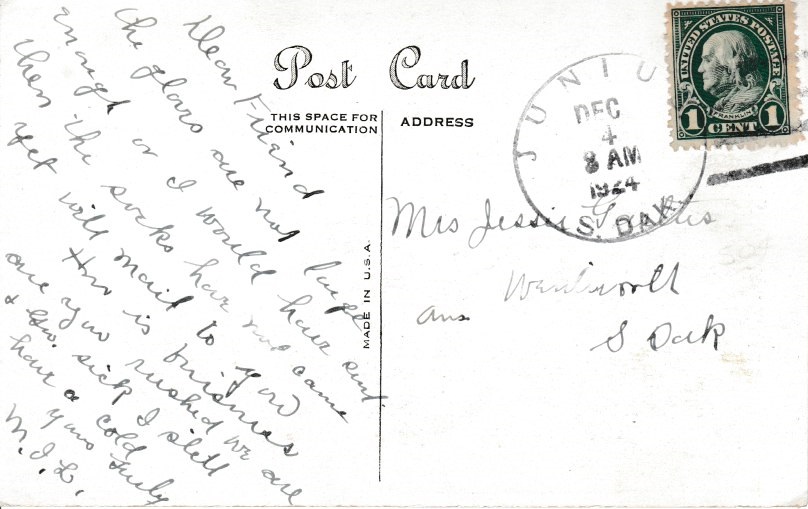 Post Card
THIS SPACE FOR
COMMUNICATION
ADDRESS
MADE IN U.S.A.
UNITED STATES POSTAGE
FRANKLIN
1 CENT 1
JUNIU
DEC
4
8 AM
1924
S. DAK.
Dear Friend
the glovs are not large
enough or I would have sent
then the socks have not came
yet will mail to you
How is buisness
are you rushed we are
& Geo. sick I still
have a cold
yours truly
M. J. L.
Mrs Jessie
Wentworth
Ans
S Dak